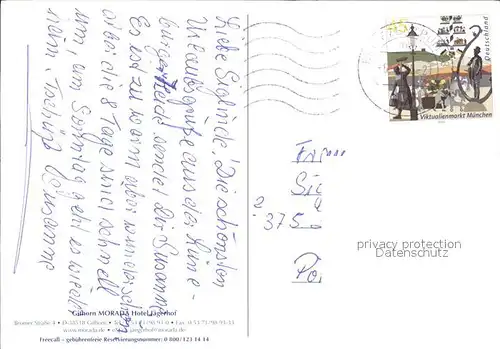 Liebe Sieglinde! Die schönsten
Urlaubsgrüße aus der Lüne-
burger Heide sendet Dir Susanne
Es ist zu warm aber wunderschön
die 8 Tage sind schnell
um, am Sonntag geht es wieder
heim. Tschüß Susanne
Gifhorn MORADA Hotel Jägerhof
Bromer Straße 4 • D-38518 Gifhorn • Tel. 0 53 71/98 93-0 • Fax 0 53 71/98 93-43
www.morada.de •
Freecall – gebührenfreie Reservierungsnummer: 0 800/123 14 14
45
Deutschland
Viktualienmarkt München
Frau
Sie
375
privacy protection
Datenschutz